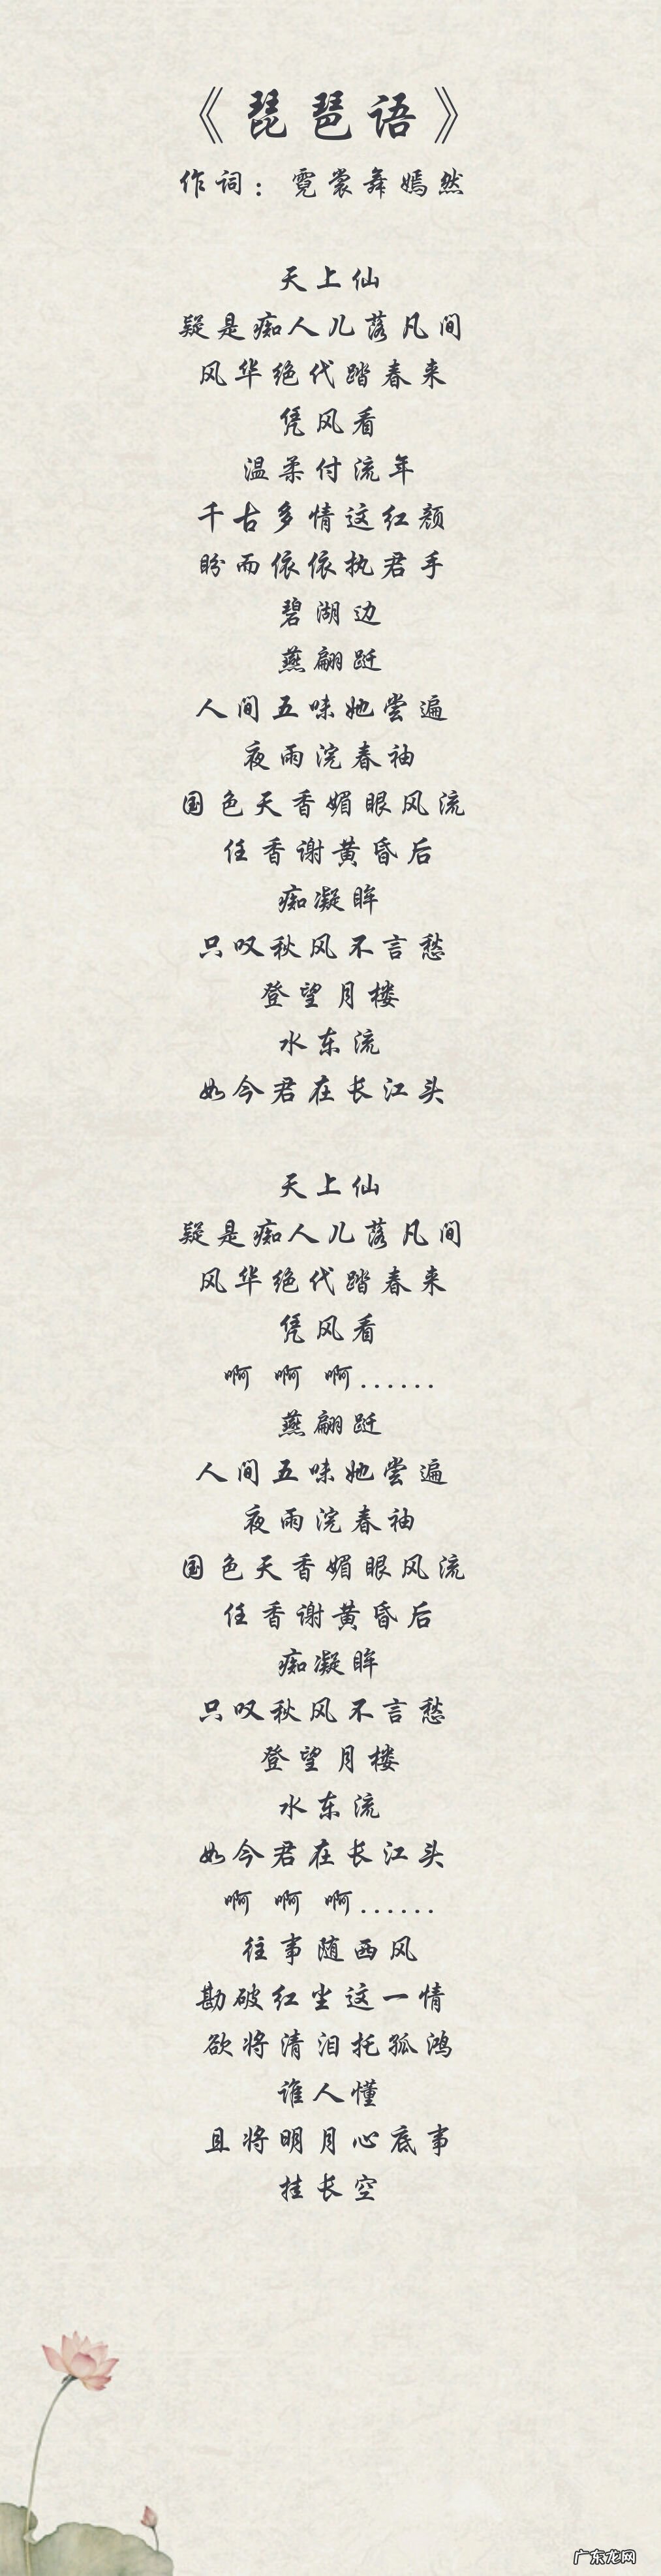 《琵琶语》
作词：霓裳舞嫣然
天上仙
疑是痴人儿落凡间
风华绝代踏春来
凭风看
温柔付流年
千古多情这红颜
盼而依依执君手
碧湖边
燕翩跹
人间五味她尝遍
夜雨浣春袖
国色天香媚眼风流
任香谢黄昏后
痴凝眸
只叹秋风不言愁
登望月楼
水东流
如今君在长江头
天上仙
疑是痴人儿落凡间
风华绝代踏春来
凭风看
啊 啊 啊......
燕翩跹
人间五味她尝遍
夜雨浣春袖
国色天香媚眼风流
任香谢黄昏后
痴凝眸
只叹秋风不言愁
登望月楼
水东流
如今君在长江头
啊 啊 啊......
往事随西风
勘破红尘这一情
欲将清泪托孤鸿
谁人懂
且将明月心底事
挂长空
广东龙网